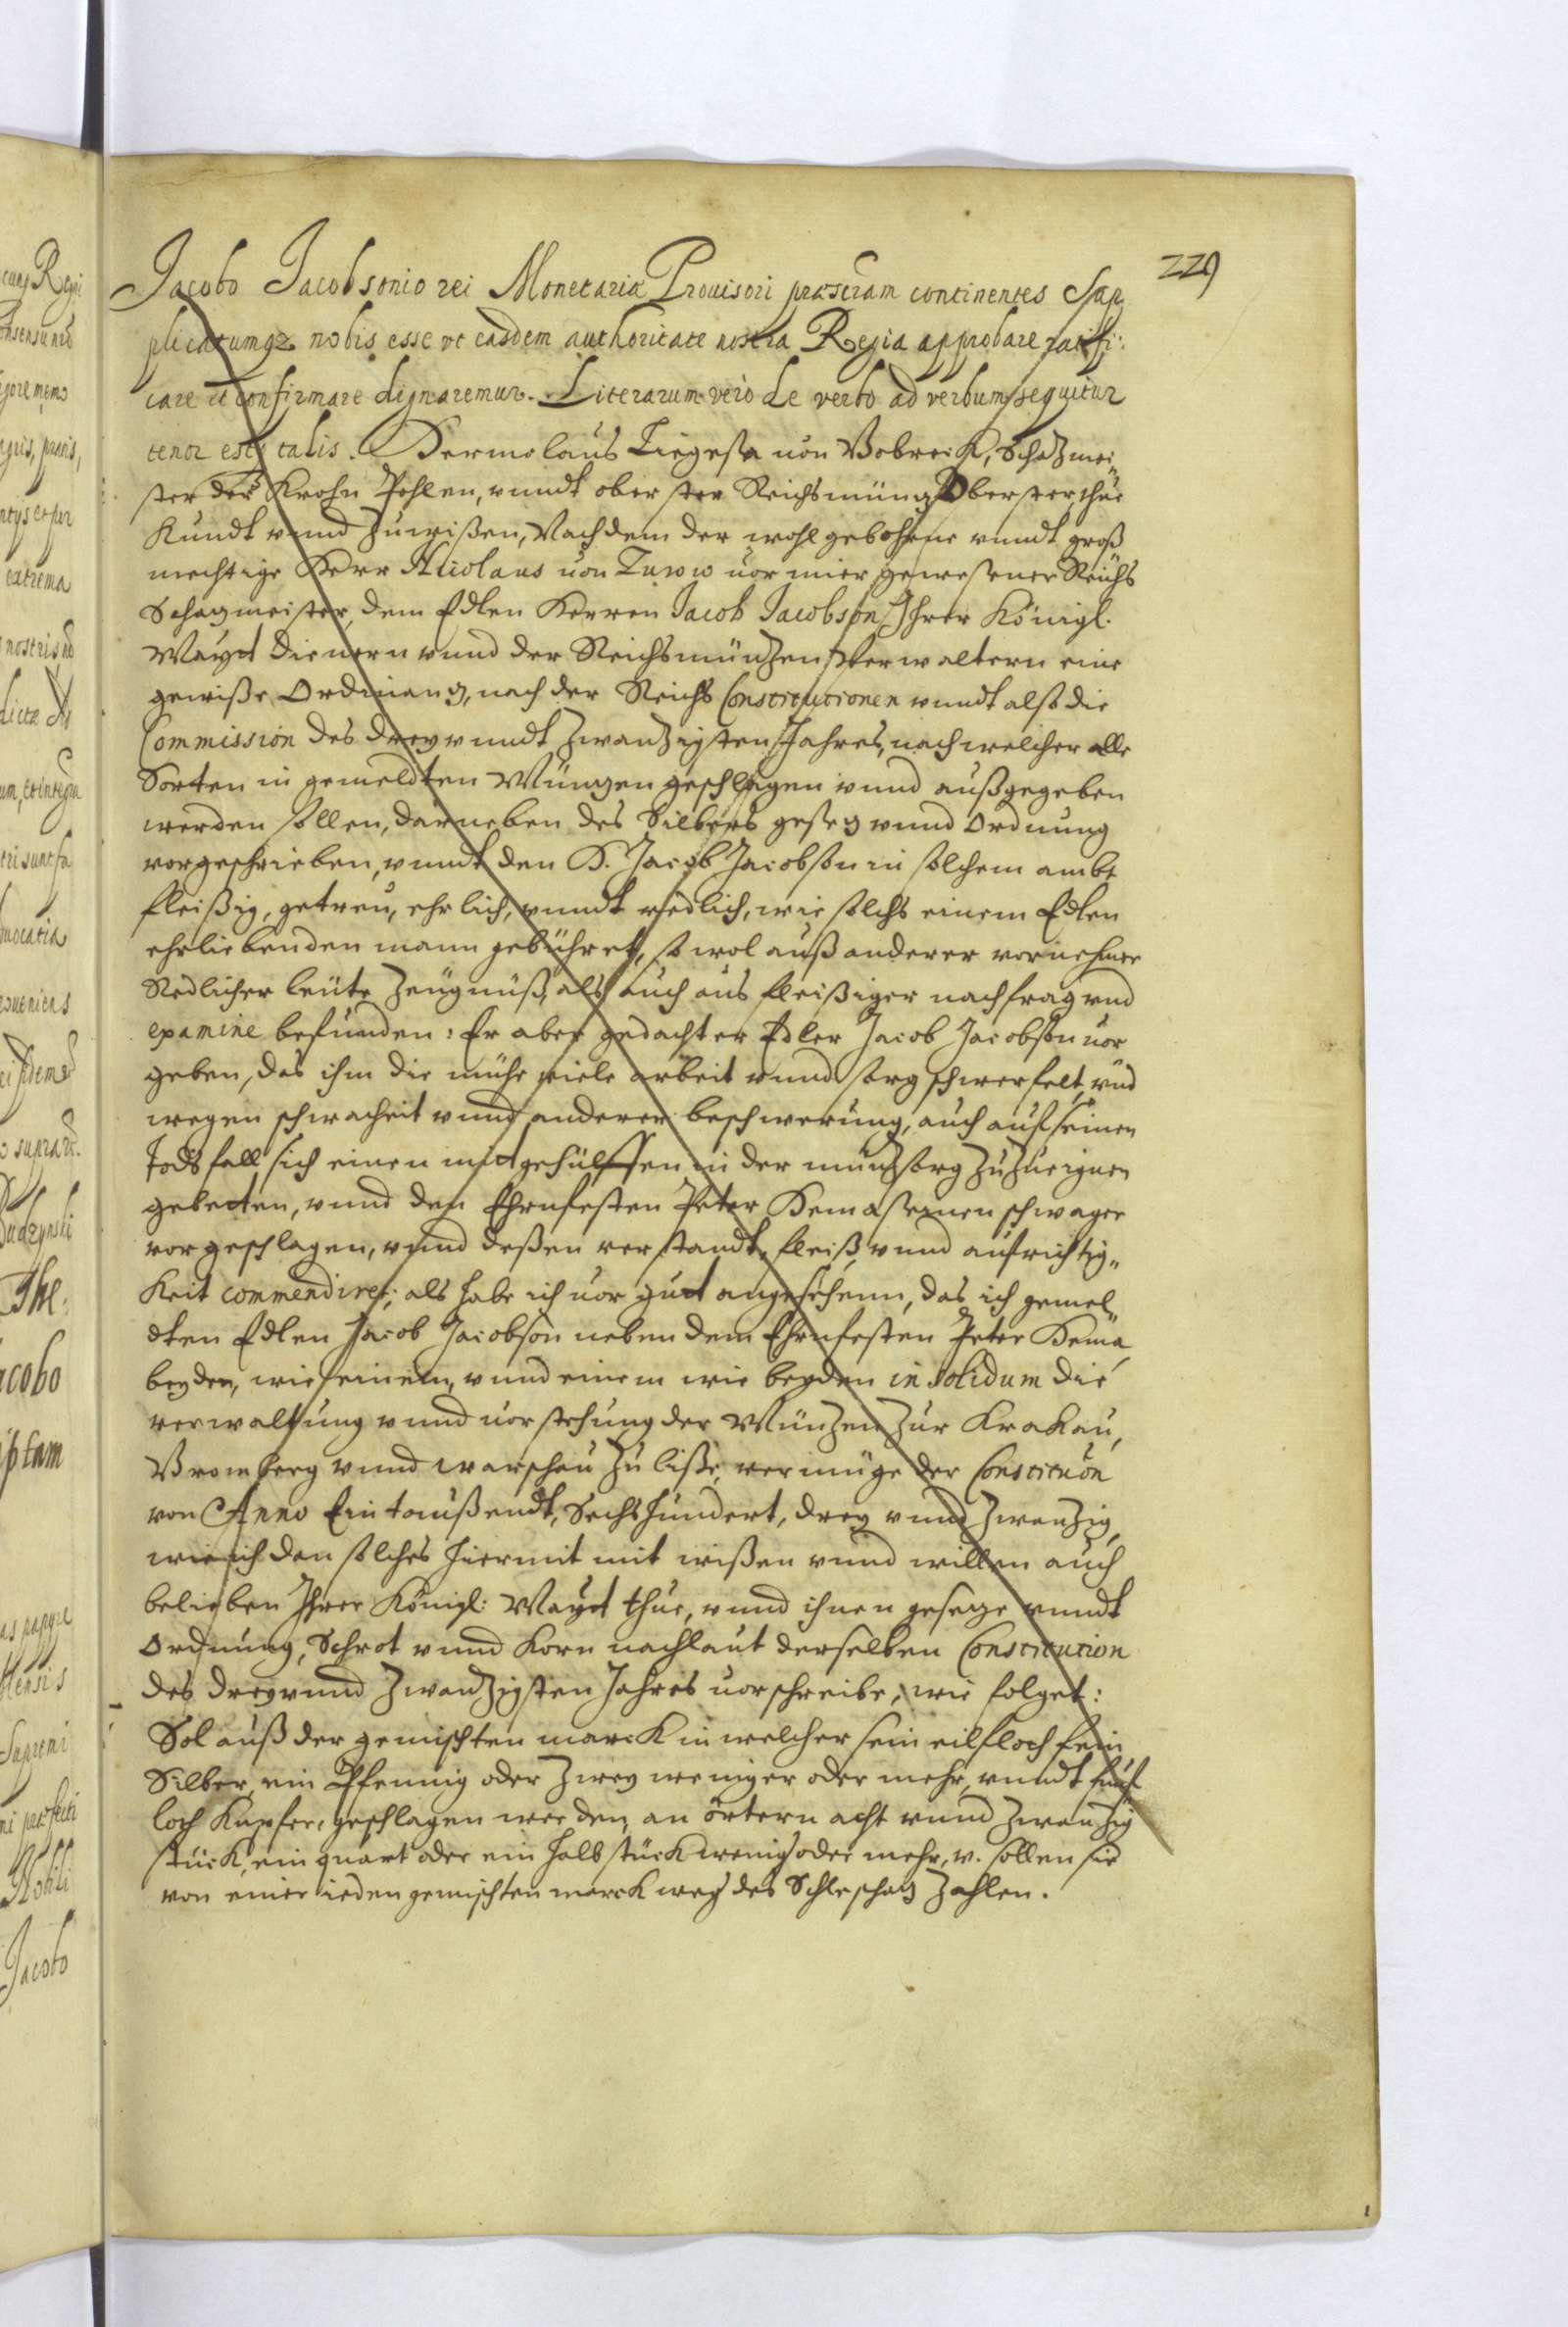 229
Jacobo Jacobsonio rei Monetariæ Prouisori præscram continentes Sup
plicatumqz nobis esse vt easdem authoritate nostra Regia approbare ratifi:
care et confirmare dignaremur. Literarum verò de verbo ad verbum sequitur
tenor estq talis. Hermolaus Liegesa von Bobreck, Schatzmei„
ster der Krohn Pohlen, vundt oberster Reichsmüntz Oberster, thue
Kundt vnnd zuwißen, Nachdem der wohlgebohrne vnndt groß
mechtige Herr Nicolaus von Zurow vor mier gewesener Reichs
Schazmeister, dem Edlen Herren Jacob Jacobson Ihrer Königl.
Mayt Dienern vnnd der Reichsmünzen Verwaltern eine
gewiße Ordinanz, nach der Reichs Constitutionen vnndt alß die
Commission des drey vnndt zwanzigsten Jahres, nach welcher alle
Sorten in gemeldten Münzen geschlagen vnnd außgegeben
werden sollen, darneben des Silbers gesez vnnd Ordnung
vorgeschrieben, vnndt den H. Jacob Jacobson in solchem ambt
fleißig, getreu, ehrlich, vnndt redlich, wie solchs einem Edlen
ehrliebenden mann gebühret, so wol auß anderer vornehmer
Redlicher leüte Zeügnüß, als auch aus fleißiger nachfrag vnd
examine befunden: Er aber gedachter Edler Jacob Jacobson vor
geben, das ihm die mühe viele arbeit vnnd sorg schwerfelt, vnd
wegen schwacheit vnnd anderer beschwerung, auch auf seinen
Todsfall sich einen mitgehülffen in der münzsorg zuzueignen
gebetten, vnnd den Ehrnfesten Peter Hema seinen schwager
vorgeschlagen, vnnd deßen verstandt, fleiß vnnd aufrichtig„
Keit commendiret; als habe ich vor gut angesehenn, das ich gemel„
dten Edlen Jacob Jacobson neben dem Ehrnfesten Peter Hema
beyden, wie einem, vnnd einem wie beyden in solidum die
verwaltung vnnd vorstehung der Münzen zur Krakau,
Bromberg vnnd warschau zu liße, vermüge der Constituõn
von Anno Ein tausendt, Sechshundert, drey vnnd zwanzig,
wie ich den solches hiermit mit wißen vnnd willen auch
belieben Ihrer Königl: Mayt thue, vnnd ihnen geseze vnndt
Ordnung, Schrot vnnd Korn nachlaut derselben Constitution
des drey vnnd zwanzigsten Jahres vorschreibe, wie folget:
Sol auß der gemischten marcK in welcher sein eilfloch fein
Silber, ein Pfennig oder zwey weniger oder mehr, vnndt fünf
loch Kupfer, geschlagen werden, an örtern acht vnnd zwanzig
stücK, ein quart oder ein halb stücK wenig oder mehr, v. sollen sie
von einer ieden gemischten marcK weg des Schleschaz zahlen.